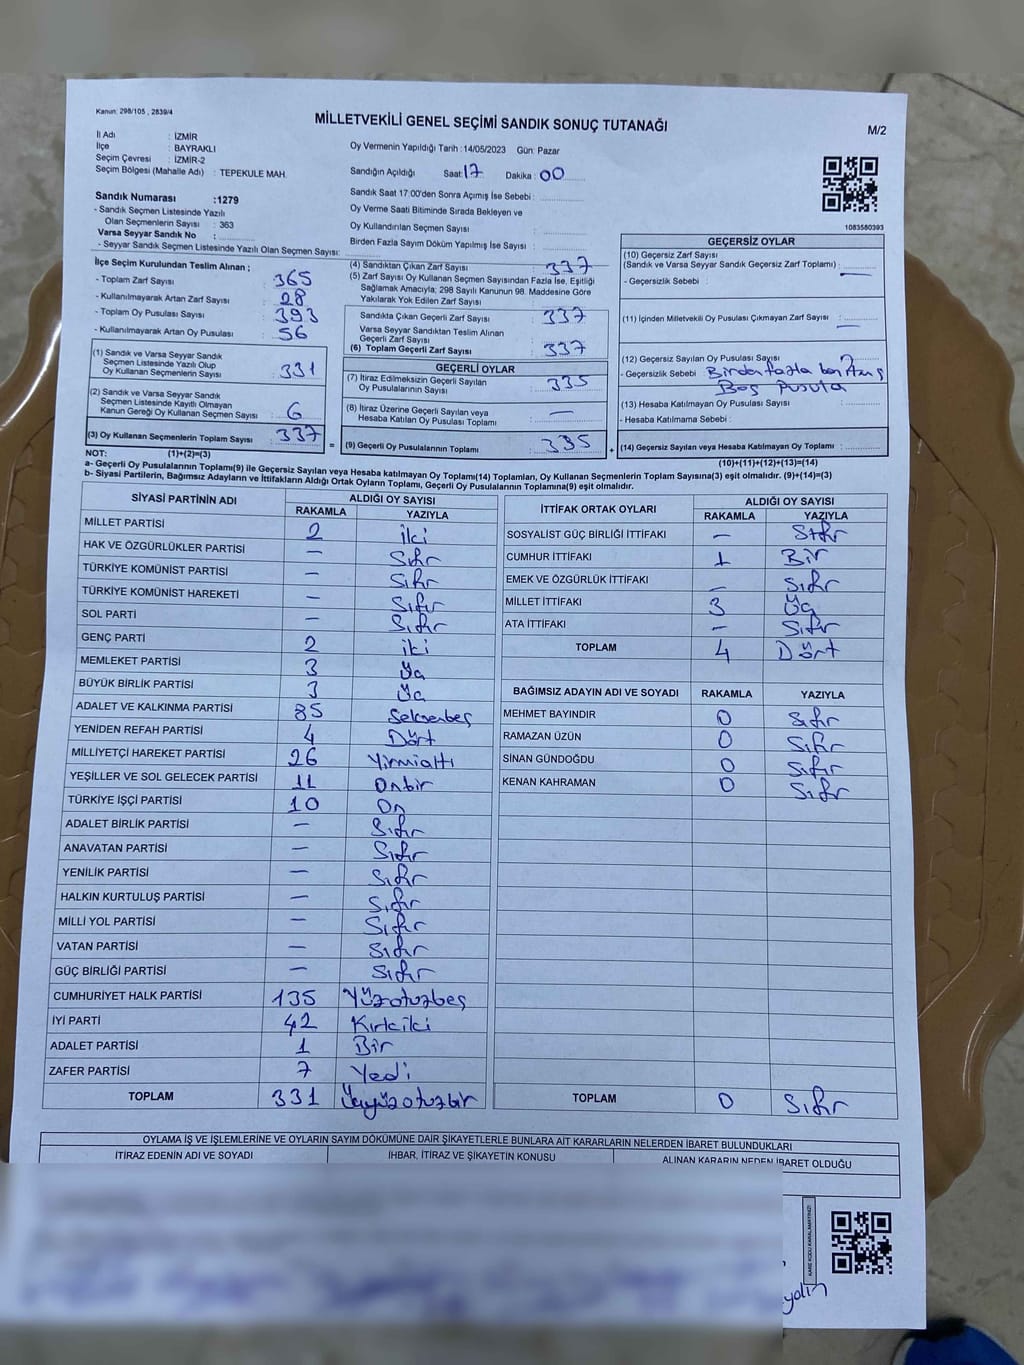 Kanun: 298/105 , 2839/4
MİLLETVEKİLİ GENEL SEÇİMİ SANDIK SONUÇ TUTANAĞI
M/2
İl Adı : İZMİR
İlçe : BAYRAKLI
Seçim Çevresi : İZMİR-2
Seçim Bölgesi (Mahalle Adı) : TEPEKULE MAH.
Oy Vermenin Yapıldığı Tarih :14/05/2023 Gün: Pazar
Sandığın Açıldığı Saat: 17 Dakika : 00
Sandık Saat 17:00'den Sonra Açımış İse Sebebi :
Oy Verme Saati Bitiminde Sırada Bekleyen ve
Oy Kullandırılan Seçmen Sayısı :
Birden Fazla Sayım Döküm Yapılmış İse Sayısı :
1083580393
Sandık Numarası :1279
- Sandık Seçmen Listesinde Yazılı
Olan Seçmenlerin Sayısı : 363
Varsa Seyyar Sandık No :
- Seyyar Sandık Seçmen Listesinde Yazılı Olan Seçmen Sayısı:
İlçe Seçim Kurulundan Teslim Alınan ;
- Toplam Zarf Sayısı : 365
- Kullanılmayarak Artan Zarf Sayısı : 28
- Toplam Oy Pusulası Sayısı : 393
- Kullanılmayarak Artan Oy Pusulası : 56
(1) Sandık ve Varsa Seyyar Sandık
Seçmen Listesinde Yazılı Olup
Oy Kullanan Seçmenlerin Sayısı : 331
(2) Sandık ve Varsa Seyyar Sandık
Seçmen Listesinde Kayıtlı Olmayan
Kanun Gereği Oy Kullanan Seçmen Sayısı : 6
(3) Oy Kullanan Seçmenlerin Toplam Sayısı : 337
(4) Sandıktan Çıkan Zarf Sayısı : 337
(5) Zarf Sayısı Oy Kullanan Seçmen Sayısından Fazla İse, Eşitliği
Sağlamak Amacıyla; 298 Sayılı Kanunun 98. Maddesine Göre
Yakılarak Yok Edilen Zarf Sayısı :
Sandıkta Çıkan Geçerli Zarf Sayısı : 337
Varsa Seyyar Sandıktan Teslim Alınan
Geçerli Zarf Sayısı :
(6) Toplam Geçerli Zarf Sayısı : 337
GEÇERLİ OYLAR
(7) İtiraz Edilmeksizin Geçerli Sayılan
Oy Pusulalarının Sayısı : 335
(8) İtiraz Üzerine Geçerli Sayılan veya
Hesaba Katılan Oy Pusulası Toplamı : —
= (9) Geçerli Oy Pusulalarının Toplamı : 335
GEÇERSİZ OYLAR
(10) Geçersiz Zarf Sayısı
(Sandık ve Varsa Seyyar Sandık Geçersiz Zarf Toplamı) : —
- Geçersizlik Sebebi :
(11) İçinden Milletvekili Oy Pusulası Çıkmayan Zarf Sayısı : —
(12) Geçersiz Sayılan Oy Pusulası Sayısı :
- Geçersizlik Sebebi : Birden fazla
Boş Pusula
(13) Hesaba Katılmayan Oy Pusulası Sayısı :
- Hesaba Katılmama Sebebi :
+ (14) Geçersiz Sayılan veya Hesaba Katılmayan Oy Toplamı :
NOT: (1)+(2)=(3)
(10)+(11)+(12)+(13)=(14)
a- Geçerli Oy Pusulalarının Toplamı(9) ile Geçersiz Sayılan veya Hesaba katılmayan Oy Toplamı(14) Toplamları, Oy Kullanan Seçmenlerin Toplam Sayısına(3) eşit olmalıdır. (9)+(14)=(3)
b- Siyasi Partilerin, Bağımsız Adayların ve İttifakların Aldığı Ortak Oyların Toplamı, Geçerli Oy Pusulalarının Toplamına(9) eşit olmalıdır.
SİYASİ PARTİNİN ADI
ALDIĞI OY SAYISI
RAKAMLA YAZIYLA
MİLLET PARTİSİ 2 iki
HAK VE ÖZGÜRLÜKLER PARTİSİ — Sıfır
TÜRKİYE KOMÜNİST PARTİSİ — Sıfır
TÜRKİYE KOMÜNİST HAREKETİ — Sıfır
SOL PARTİ — Sıfır
GENÇ PARTİ 2 iki
MEMLEKET PARTİSİ 3 Üç
BÜYÜK BİRLİK PARTİSİ 3 Üç
ADALET VE KALKINMA PARTİSİ 85 Seksenbeş
YENİDEN REFAH PARTİSİ 4 Dört
MİLLİYETÇİ HAREKET PARTİSİ 26 Yirmialtı
YEŞİLLER VE SOL GELECEK PARTİSİ 11 Onbir
TÜRKİYE İŞÇİ PARTİSİ 10 On
ADALET BİRLİK PARTİSİ — Sıfır
ANAVATAN PARTİSİ — Sıfır
YENİLİK PARTİSİ — Sıfır
HALKIN KURTULUŞ PARTİSİ — Sıfır
MİLLİ YOL PARTİSİ — Sıfır
VATAN PARTİSİ — Sıfır
GÜÇ BİRLİĞİ PARTİSİ — Sıfır
CUMHURİYET HALK PARTİSİ 135 Yüzotuzbeş
İYİ PARTİ 42 Kırkiki
ADALET PARTİSİ 1 Bir
ZAFER PARTİSİ 7 Yedi
TOPLAM 331 Üçyüzotuzbir
İTTİFAK ORTAK OYLARI
ALDIĞI OY SAYISI
RAKAMLA YAZIYLA
SOSYALİST GÜÇ BİRLİĞİ İTTİFAKI — Sıfır
CUMHUR İTTİFAKI 1 Bir
EMEK VE ÖZGÜRLÜK İTTİFAKI — Sıfır
MİLLET İTTİFAKI 3 Üç
ATA İTTİFAKI — Sıfır
TOPLAM 4 Dört
BAĞIMSIZ ADAYIN ADI VE SOYADI RAKAMLA YAZIYLA
MEHMET BAYINDIR 0 Sıfır
RAMAZAN ÜZÜN 0 Sıfır
SİNAN GÜNDOĞDU 0 Sıfır
KENAN KAHRAMAN 0 Sıfır
TOPLAM 0 Sıfır
OYLAMA İŞ VE İŞLEMLERİNE VE OYLARIN SAYIM DÖKÜMÜNE DAİR ŞİKAYETLERLE BUNLARA AİT KARARLARIN NELERDEN İBARET BULUNDUKLARI
İTİRAZ EDENİN ADI VE SOYADI
İHBAR, İTİRAZ VE ŞİKAYETİN KONUSU
ALINAN KARARIN NEDEN İBARET OLDUĞU
KARE KODU KARALAMAYINIZ!